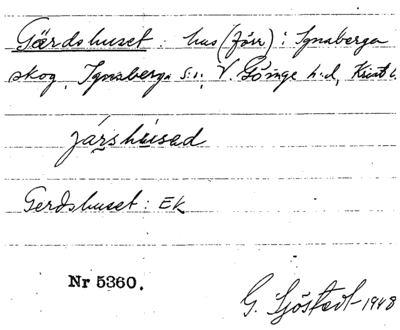 Gärdshuset: hus (förr) i Ignaberga
skog, Ignaberga s:n, V. Göinge h:d, Krist l.
järshúsed
Gerdshuset: EK
Nr 5360.
G. Sjöstedt 1948